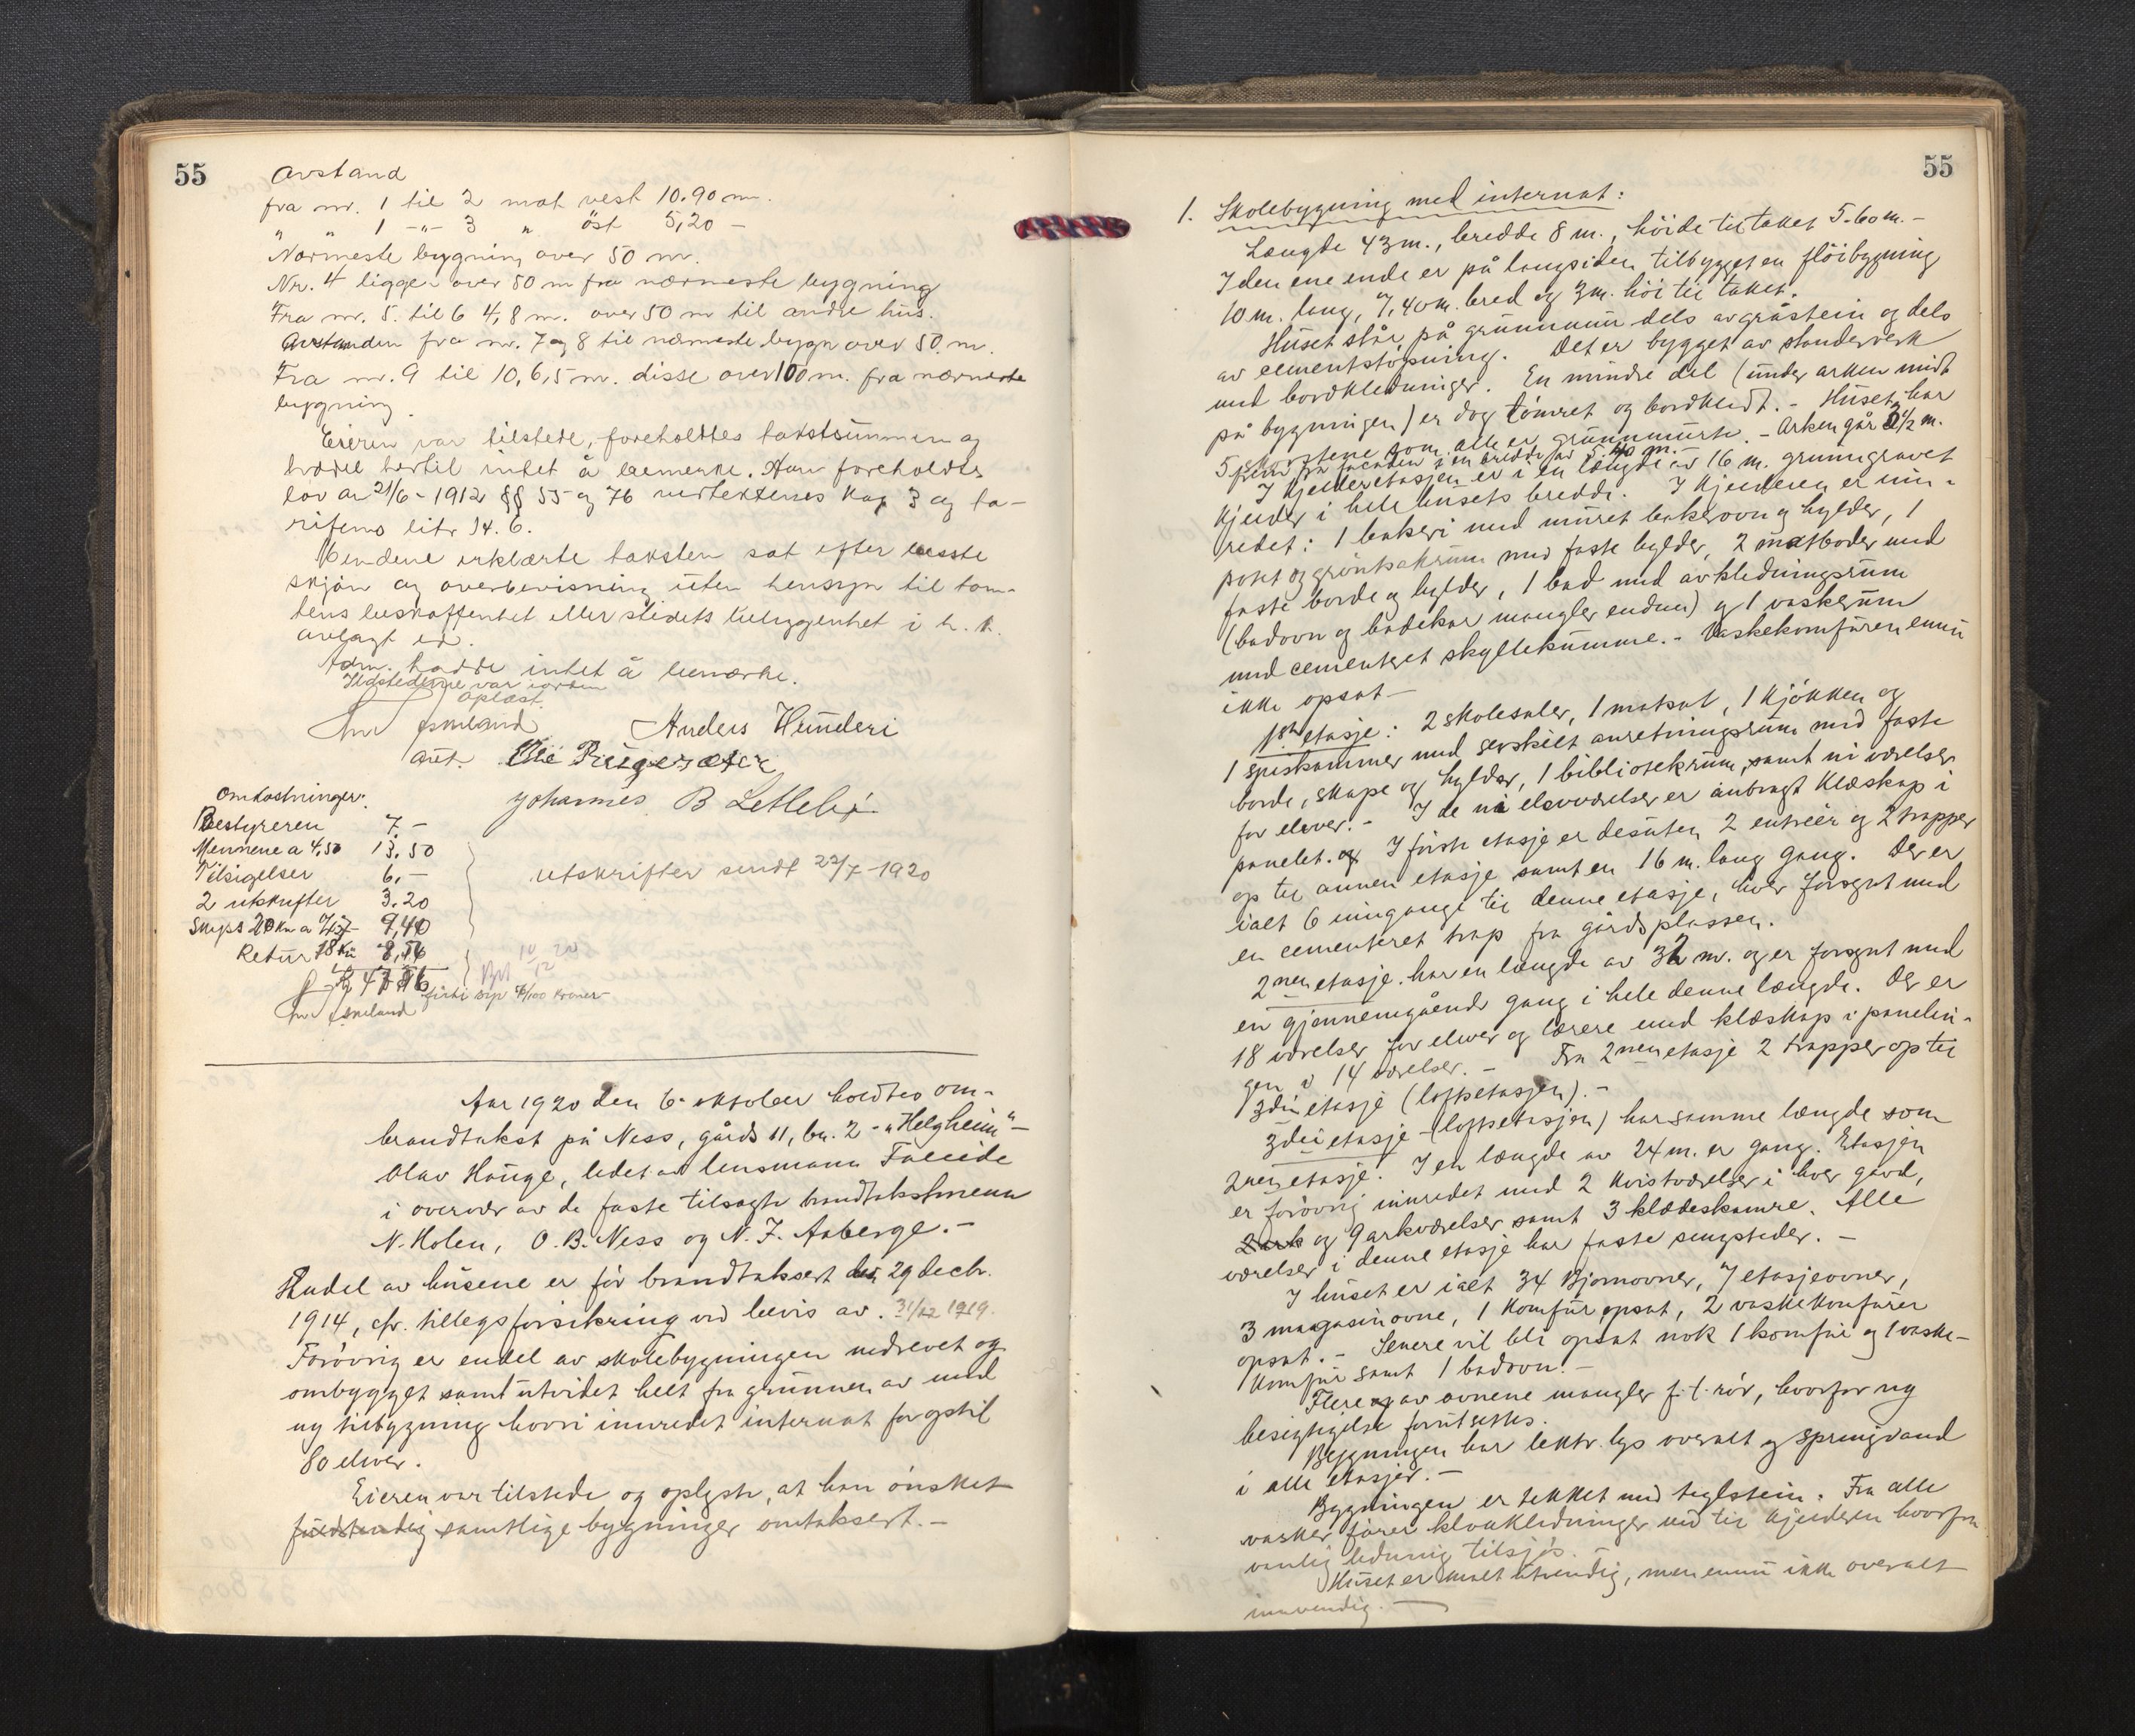 55
Avstand
fra nr. 1 til 2 mot vest 10.90 m.
" " 1 -"- 3 " öst 5,20 -
Nærmeste bygning over 50 m.
Nr. 4 ligger over 50 m fra nærmeste bygning
Fra nr. 5. til 6 4,8 m. over 50 m til andre hus.
Avstanden fra nr. 7 og 8 til nærmeste bygn over 50. m.
Fra nr. 9 til 10, 6,5 m. disse over 100 m. fra nærmeste
bygning.
Eieren var tilstede, foreholdtes takstsummen og
hadde hertil intet å bemerke. Han foreholdtes
lov av 21/6-1912 §§ 55 og 76 vedtektenes kap 3 og ta-
rifens litr 14. 6.
Mendene erklærte taksten sat efter beste
skjön og overbevisning uten hensyn til tom-
tens beskaffenhet eller stedets beliggenhet i h. t.
avlagt ed.
Adm. hadde intet å bemærke.
Ildstederne var iorden
Oplæst.
Anders Hunderi
aut.
Johannes B Letlebö.
Omkostninger:
Bestyreren 7.-
Mennene a 4,50 13.50
Tilsigelser 6,-
2 utskrifter 3.20
Skyps 20 km a 9,40
Retur 18 km 8,46
utskrifter sendt 22/7-1920
Aar 1920 den 6. oktober holdtes om-
brandtakst på Ness, gårds 11, br. 2 - "Helgheim" -
Olav Hauge, ledet av lensmann Faleide
i overvær av de faste tilsagte brandtakstmenn
N. Holen, O. B. Ness og N. J. Aaberge.-
Endel av husene er för brandtaksert den 29 decbr.
1914, cfr. tillegsforsikring ved bevis av. 31/12 1919.
Forövrig er endel av skolebygningen nedrevet og
ombygget samt utvidet helt fra grunnen av med
ny tilbygning hvori innredet internat for optil
80 elever.
Eieren var tilstede og oplyste, at han önsket
fuldstendig samtlige bygninger omtaksert.-
55
1. Skolebygning med internat:
Længde 43 m., bredde 8 m., höide til taket 5.60 m.-
I den ene ende er på langsiden tilbygget en flöibygning
10 m. lang, 7,40 m. bred og 3 m. höi til taket.
Huset står på grunnmur dels av gråstein og dels
av cementstöpning. Det er bygget av standerverk
med bordkledninger. En mindre del (under arken midt
på bygningen) er dog tömret og bordkledt.- Huset har
5 skorstene som alle er grunnmurte.- Arken går 2 1/2 m.
frem fra facaden i en bredde av 5.40 m.-
I kjelleretasjen er i en længde av 16 m. grunngravet
kjelder i hele husets bredde. I kjelderen er inn-
redet: 1 bakeri med muret bakerovn og hylder, 1
potet og grönsakrum med faste hylder, 2 matboder med
faste borde og hylder, 1 bad med avkledningsrum
(badovn og badekar mangler endnu) og 1 vaskerum
med cementeret skyllekumme.- Vaskekomfüren ennu
ikke opsat-
1ste etasje: 2 skolesaler, 1 matsal, 1 kjökken og
1 spiskammer med serskilt anretningsrum med faste
borde, skape og hylder, 1 bibliotekrum, samt ni værelser
for elever.- I de ni elevværelser er anbragt klæskap i
panelet. og I förste etasje er desuten 2 entréer og 2 trapper
op til annen etasje samt en 16 m. lang gang. Der er
ialt 6 innganger til denne etasje, hver forsynt med
en cementeret trap fra gårdsplassen.
2nen etasje. har en længde av 32 m. og er forsynt med
en gjennemgående gang i hele denne længde. Der er
18 værelser for elever og lærere med klæskap i panelin-
gen i 14 værelser.- Fra 2nen etasje 2 trapper op til
3die etasje (loftsetasjen).-
3die etasje - (loftsetasjen) har samme længde som
2nen etasje. I en længde av 24 m. er gang. Etasjen
er forövrig innredet med 2 kvistværelser i hver gavl,
2 ark og 9 arkværelser samt 3 klædeskamre. Alle
værelser i denne etasje har faste sengsteder.-
I huset er ialt 34 Bjornovner, 7 etasjeovner,
3 magasinovne, 1 komfür opsat, 2 vaskekomfürer
opsat.- Senere vil bli opsat nok 1 komfür og 1 vaske-
komfür samt 1 badovn.-
Flere og av ovnene mangler f. t. rör, hvorfor ny
besigtigelse forutsettes.
Bygningen har lektr. lys overalt og springvand
i alle etasjer.-
Bygningen er tekket med teglstein. Fra alle
vasker förer kloakledninger ned til kjelderen hvorfra
vanlig ledning tilsjös.
Huset er malt utvendig, men ennu ikke overalt
innvendig.-